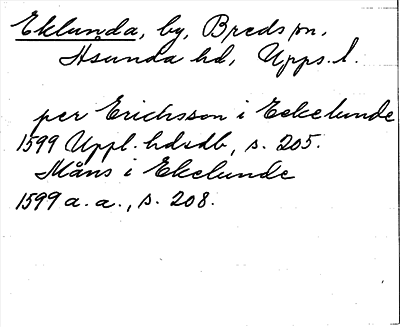 Eklunda, by, Breds sn,
Åsunda hd, Upps. l.
per Erichsson i Eekelunde
1599 Uppl. hdrdb, s. 205.
Måns i Ekelunde
1599 a. a., s. 208.